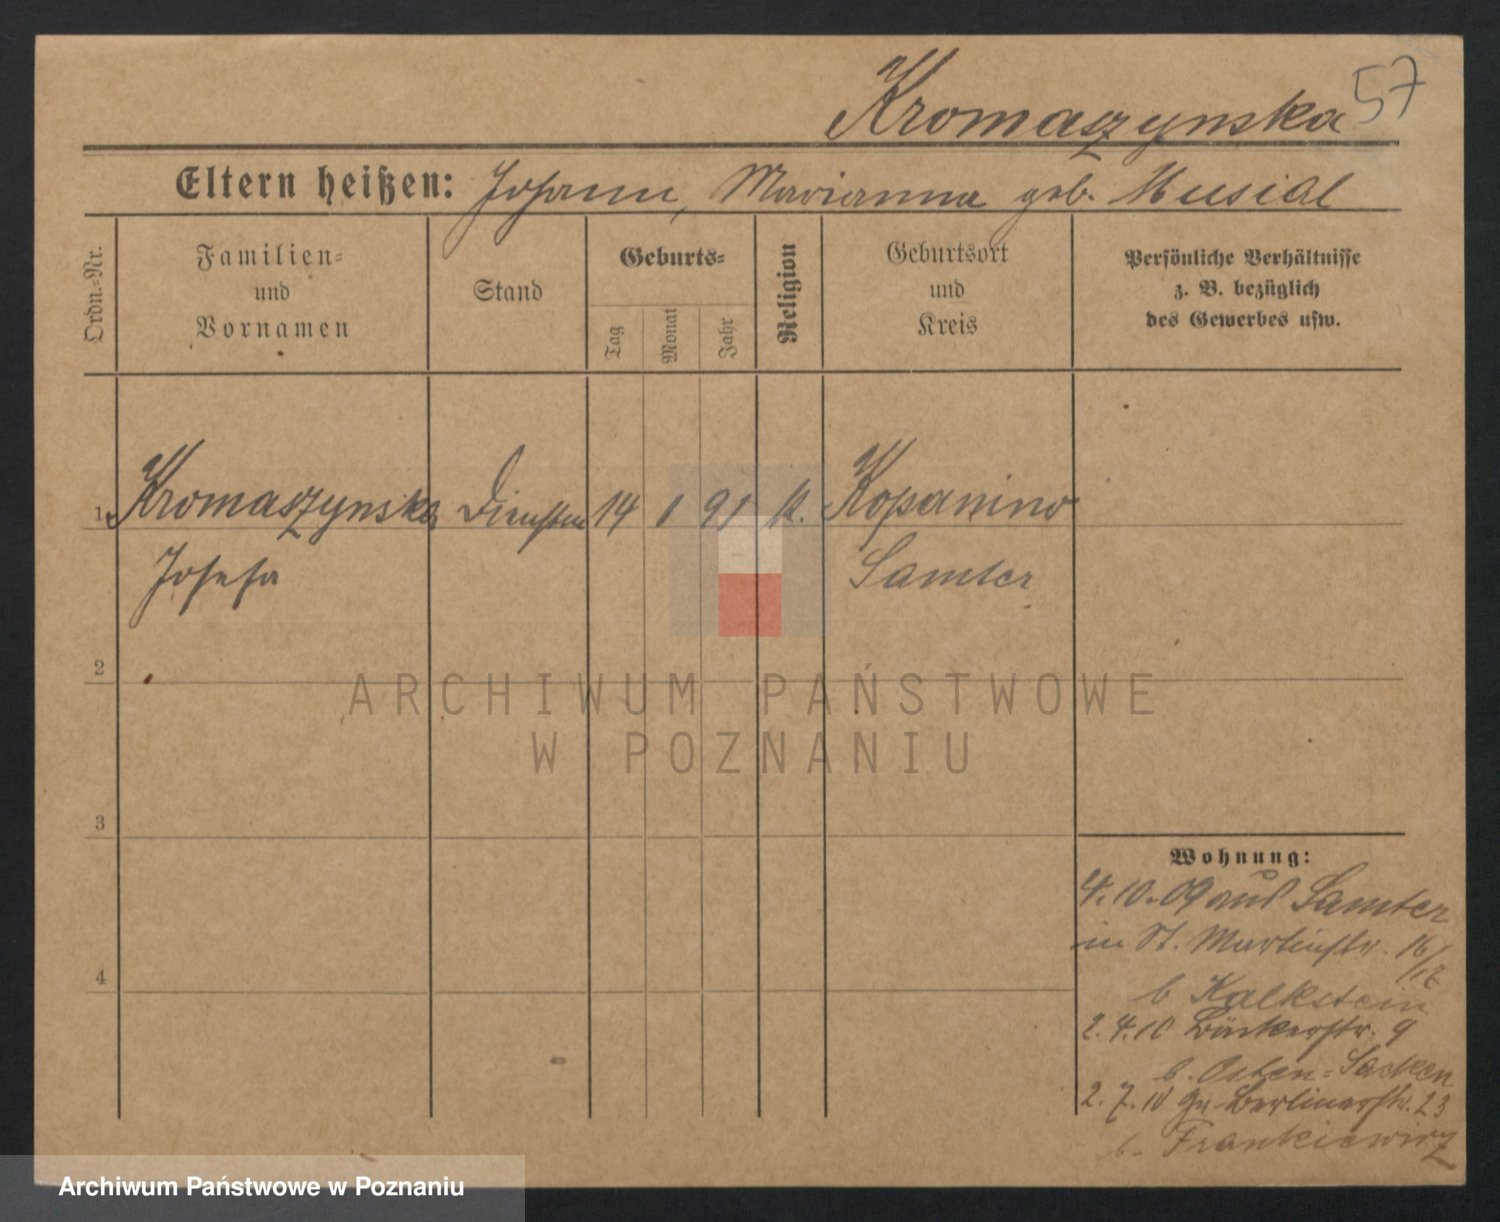 Kromaszynska 57
Eltern heißen: Johann, Marianna geb. Musial
Ordn.-Nr.
Familien-
und
Vornamen
Stand
Geburts-
Tag
Monat
Jahr
Religion
Geburtsort
und
Kreis
Persönliche Verhältnisse
z. B. bezüglich
des Gewerbes usw.
1 Kromaszynska 14 1 91 k. Kopanino
Josefa Samter
2
3
4
Wohnung:
4.10.09 aus Samter
in St. Martinstr. 16/17
b Kalkstein
2.4.10 Bäckerstr. 9
b. Osten-Sacken
2.7.10 Gr Berlinerstr. 23
b. Frankiewicz
ARCHIWUM PAŃSTWOWE
W POZNANIU
Archiwum Państwowe w Poznaniu